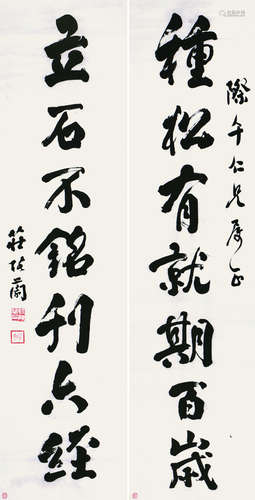 際午仁兄属正
種松有就期百歲
立石不銘刊六經
莊陔蘭